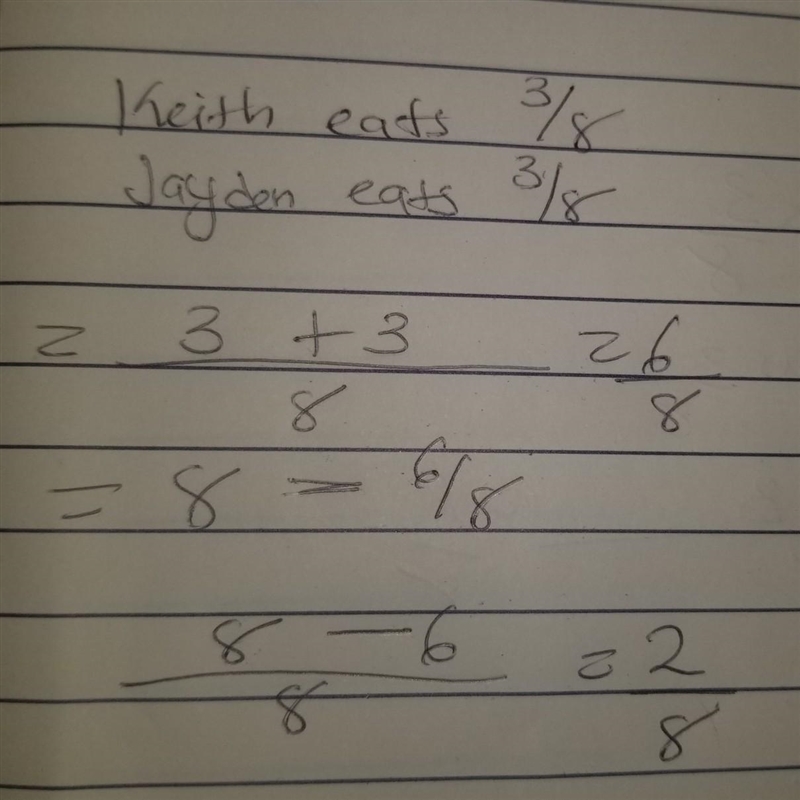 Keith eats 3/8
Jayden eats 3/8
= 3 + 3 / 8 = 6/8
= 8 - 6/8
8 - 6 / 8 = 2/8